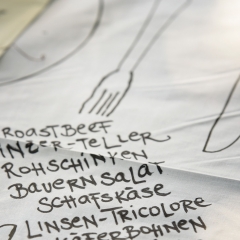 ROASTBEEF
INZER-TELLER
ROHSCHINKEN
BAUERNSALAT
SCHAFSKÄSE
LINSEN-TRICOLORE
KÄFERBOHNEN